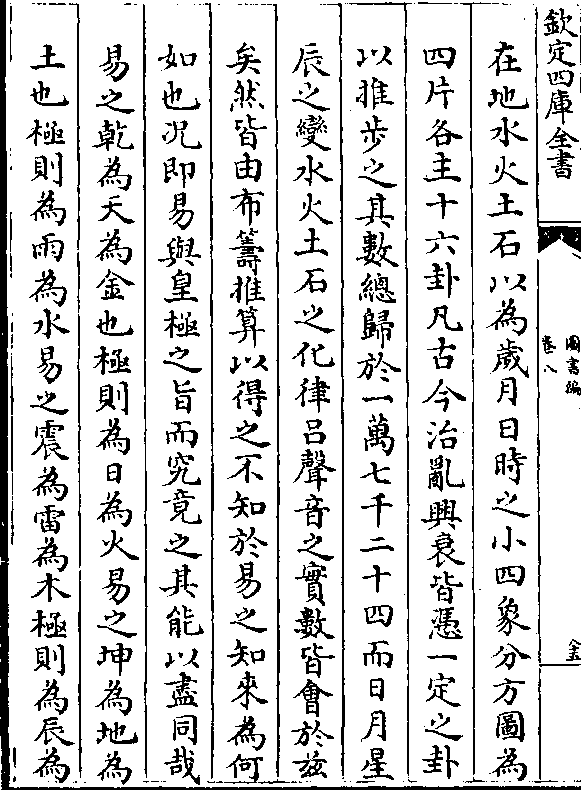 欽定四庫全書
圖書編
卷八
在地水火土石以為歲月日時之小四象分方圖為
四片各主十六卦凡古今治亂興衰皆憑一定之卦
以推步之其數總歸於一萬七千二十四而日月星
辰之變水火土石之化律呂聲音之實數皆會於兹
矣然皆由布籌推算以得之不知於易之知來為何
如也况即易與皇極之旨而究竟之其能以盡同哉
易之乾為天為金也極則為日為火易之坤為地為
土也極則為雨為水易之震為雷為木極則為辰為